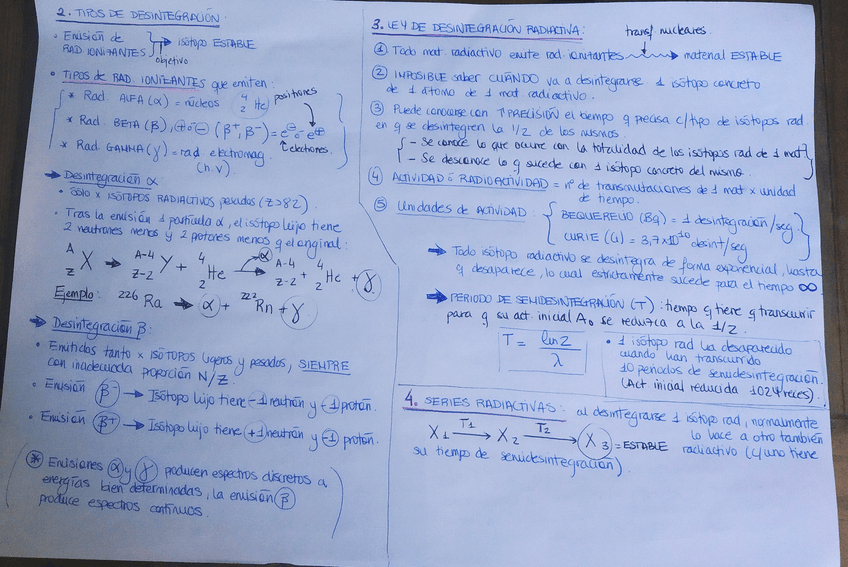 2. TIPOS DE DESINTEGRACIÓN:
• Emisión de RAD. IONITANTES → isótopo ESTABLE
objetivo
• TIPOS de RAD. IONITANTES que emiten:
* Rad. ALFA (α) = núcleos ⁴₂He
positrones
* Rad. BETA (β), ⊕ o ⊖ (β⁺, β⁻) = e⊖ o e⊕
electrones.
* Rad. GAMMA (γ) = rad electromag.
(h.ν)
→ Desintegración α
• Sólo x ISÓTOPOS RADIACTIVOS pesados (Z>82)
• Tras la emisión 1 partícula α, el isótopo hijo tiene
2 neutrones menos y 2 protones menos q el original:
ᴬ_Z X → ᴬ⁻⁴_Z₋₂ Y + ⁴₂He → α ᴬ⁻⁴_Z₋₂ + ⁴₂He + γ
Ejemplo: ²²⁶Ra → α + ²²²Rn + γ.
→ Desintegración β:
• Emitidas tanto x ISÓTOPOS ligeros y pesados, SIEMPRE
con inadecuada proporción N/Z.
• Emisión β⁻ → Isótopo hijo tiene -1 neutrón y -1 protón.
• Emisión β⁺ → Isótopo hijo tiene +1 neutrón y -1 protón.
* Emisiones α y γ producen espectros discretos a
energías bien determinadas, la emisión β
produce espectros continuos.
3. LEY DE DESINTEGRACIÓN RADIACTIVA:
transf. nucleares.
① Todo mat. radiactivo emite rad. ionitantes → material ESTABLE
② IMPOSIBLE saber CUÁNDO va a desintegrarse 1 isótopo concreto
de 1 átomo de 1 mat radiactivo.
③ Puede conocerse con ↑ PRECISIÓN el tiempo q precisa c/tipo de isótopos rad.
en q se desintegren la 1/2 de los mismos.
- Se conoce lo que ocurre con la totalidad de los isótopos rad de 1 mat
- Se desconoce lo q sucede con 1 isótopo concreto del mismo.
④ ACTIVIDAD ó RADIOACTIVIDAD = nº de transmutaciones de 1 mat x unidad
de tiempo.
⑤ Unidades de ACTIVIDAD: BEQUERELIO (Bq) = 1 desintegración/seg.
CURIE (Ci) = 3,7x10¹⁰ desint/seg
→ Todo isótopo radiactivo se desintegra de forma exponencial, hasta
q desaparece, lo cual estrictamente sucede para el tiempo ∞
→ PERIODO DE SEMIDESINTEGRACIÓN (T): tiempo q tiene q transcurrir
para q su act. inicial A₀ se reduzca a la 1/2.
T = ln2 / λ
• 1 isótopo rad ha desaparecido
cuando han transcurrido
10 periodos de semidesintegración.
(Act inicial reducida 1024 veces).
4. SERIES RADIACTIVAS: al desintegrarse 1 isótopo rad, normalmente
lo hace a otro también
X₁ —T₁→ X₂ —T₂→ X₃ = ESTABLE radiactivo (c/uno tiene
su tiempo de semidesintegración).